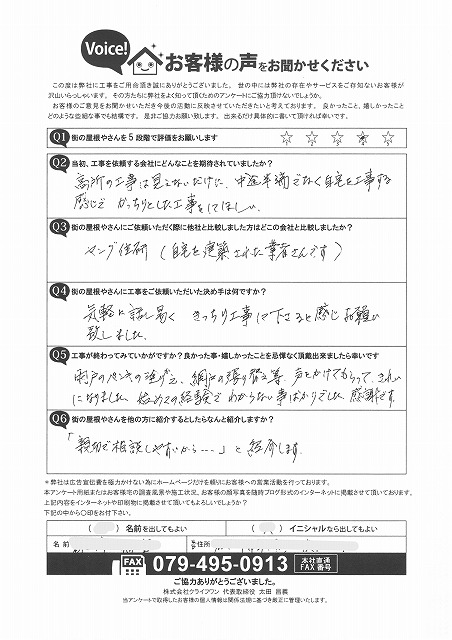 Voice! お客様の声をお聞かせください
この度は弊社に工事をご用命頂き誠にありがとうございました。世の中には弊社の存在やサービスをご存知ないお客様が
沢山いらっしゃいます。その方たちに弊社をよく知って頂くためのアンケートにご協力頂けないでしょうか。
お客様のご意見をお聞かせいただき今後の活動に反映させていただきたいと考えております。良かったこと、嬉しかったこと
どのような些細な事でも結構です。是非ご協力お願い致します。出来るだけ具体的に書いて頂ければ幸いです。
Q1 街の屋根やさんを5段階で評価をお願いします
☆ ☆ ☆ ☆ ☆
Q2 当初、工事を依頼する会社にどんなことを期待されていましたか?
高所の工事は見えないだけに、中途半端でなく自宅を工事する
感じで がっちりとした工事をしてほしい。
Q3 街の屋根やさんにご依頼いただく際に他社と比較しました方はどこの会社と比較しましたか?
ヤング住研 (自宅を建築された業者さんです)
Q4 街の屋根やさんに工事をご依頼いただいた決め手は何ですか?
気軽に話し易く きっちり工事して下さると感じお願い
致しました。
Q5 工事が終わってみていかがですか?良かった事・嬉しかったことを忌憚なく頂戴出来ましたら幸いです
雨戸のペンキの塗げ、網戸の張り替え等、声をかけてもらって、きれい
になりました。始めての経験でわからない事ばかりでした。感謝です。
Q6 街の屋根やさんを他の方に紹介するとしたらなんと紹介しますか?
「親切で相談しやすいから・・・」と紹介します。
*弊社は広告宣伝費を極力かけない為にホームページだけを頼りにお客様への営業活動を行っております。
本アンケート用紙またはお客様宅の調査風景や施工状況、お客様の顔写真を随時ブログ形式のインターネットに掲載させて頂いております。
上記内容をインターネットや印刷物に掲載させて頂いてもよろしいでしょうか?
下記の中から○印をお付下さい。
( ) 名前を出してもよい ( ) イニシャルなら出してもよい
名前 ご住所
FAX 079-495-0913 本社直通 FAX番号
ご協力ありがとうございました。
株式会社クライフワン 代表取締役 太田 昌義
当アンケートで取得したお客様の個人情報は関係法規に基づき厳正に管理いたします。